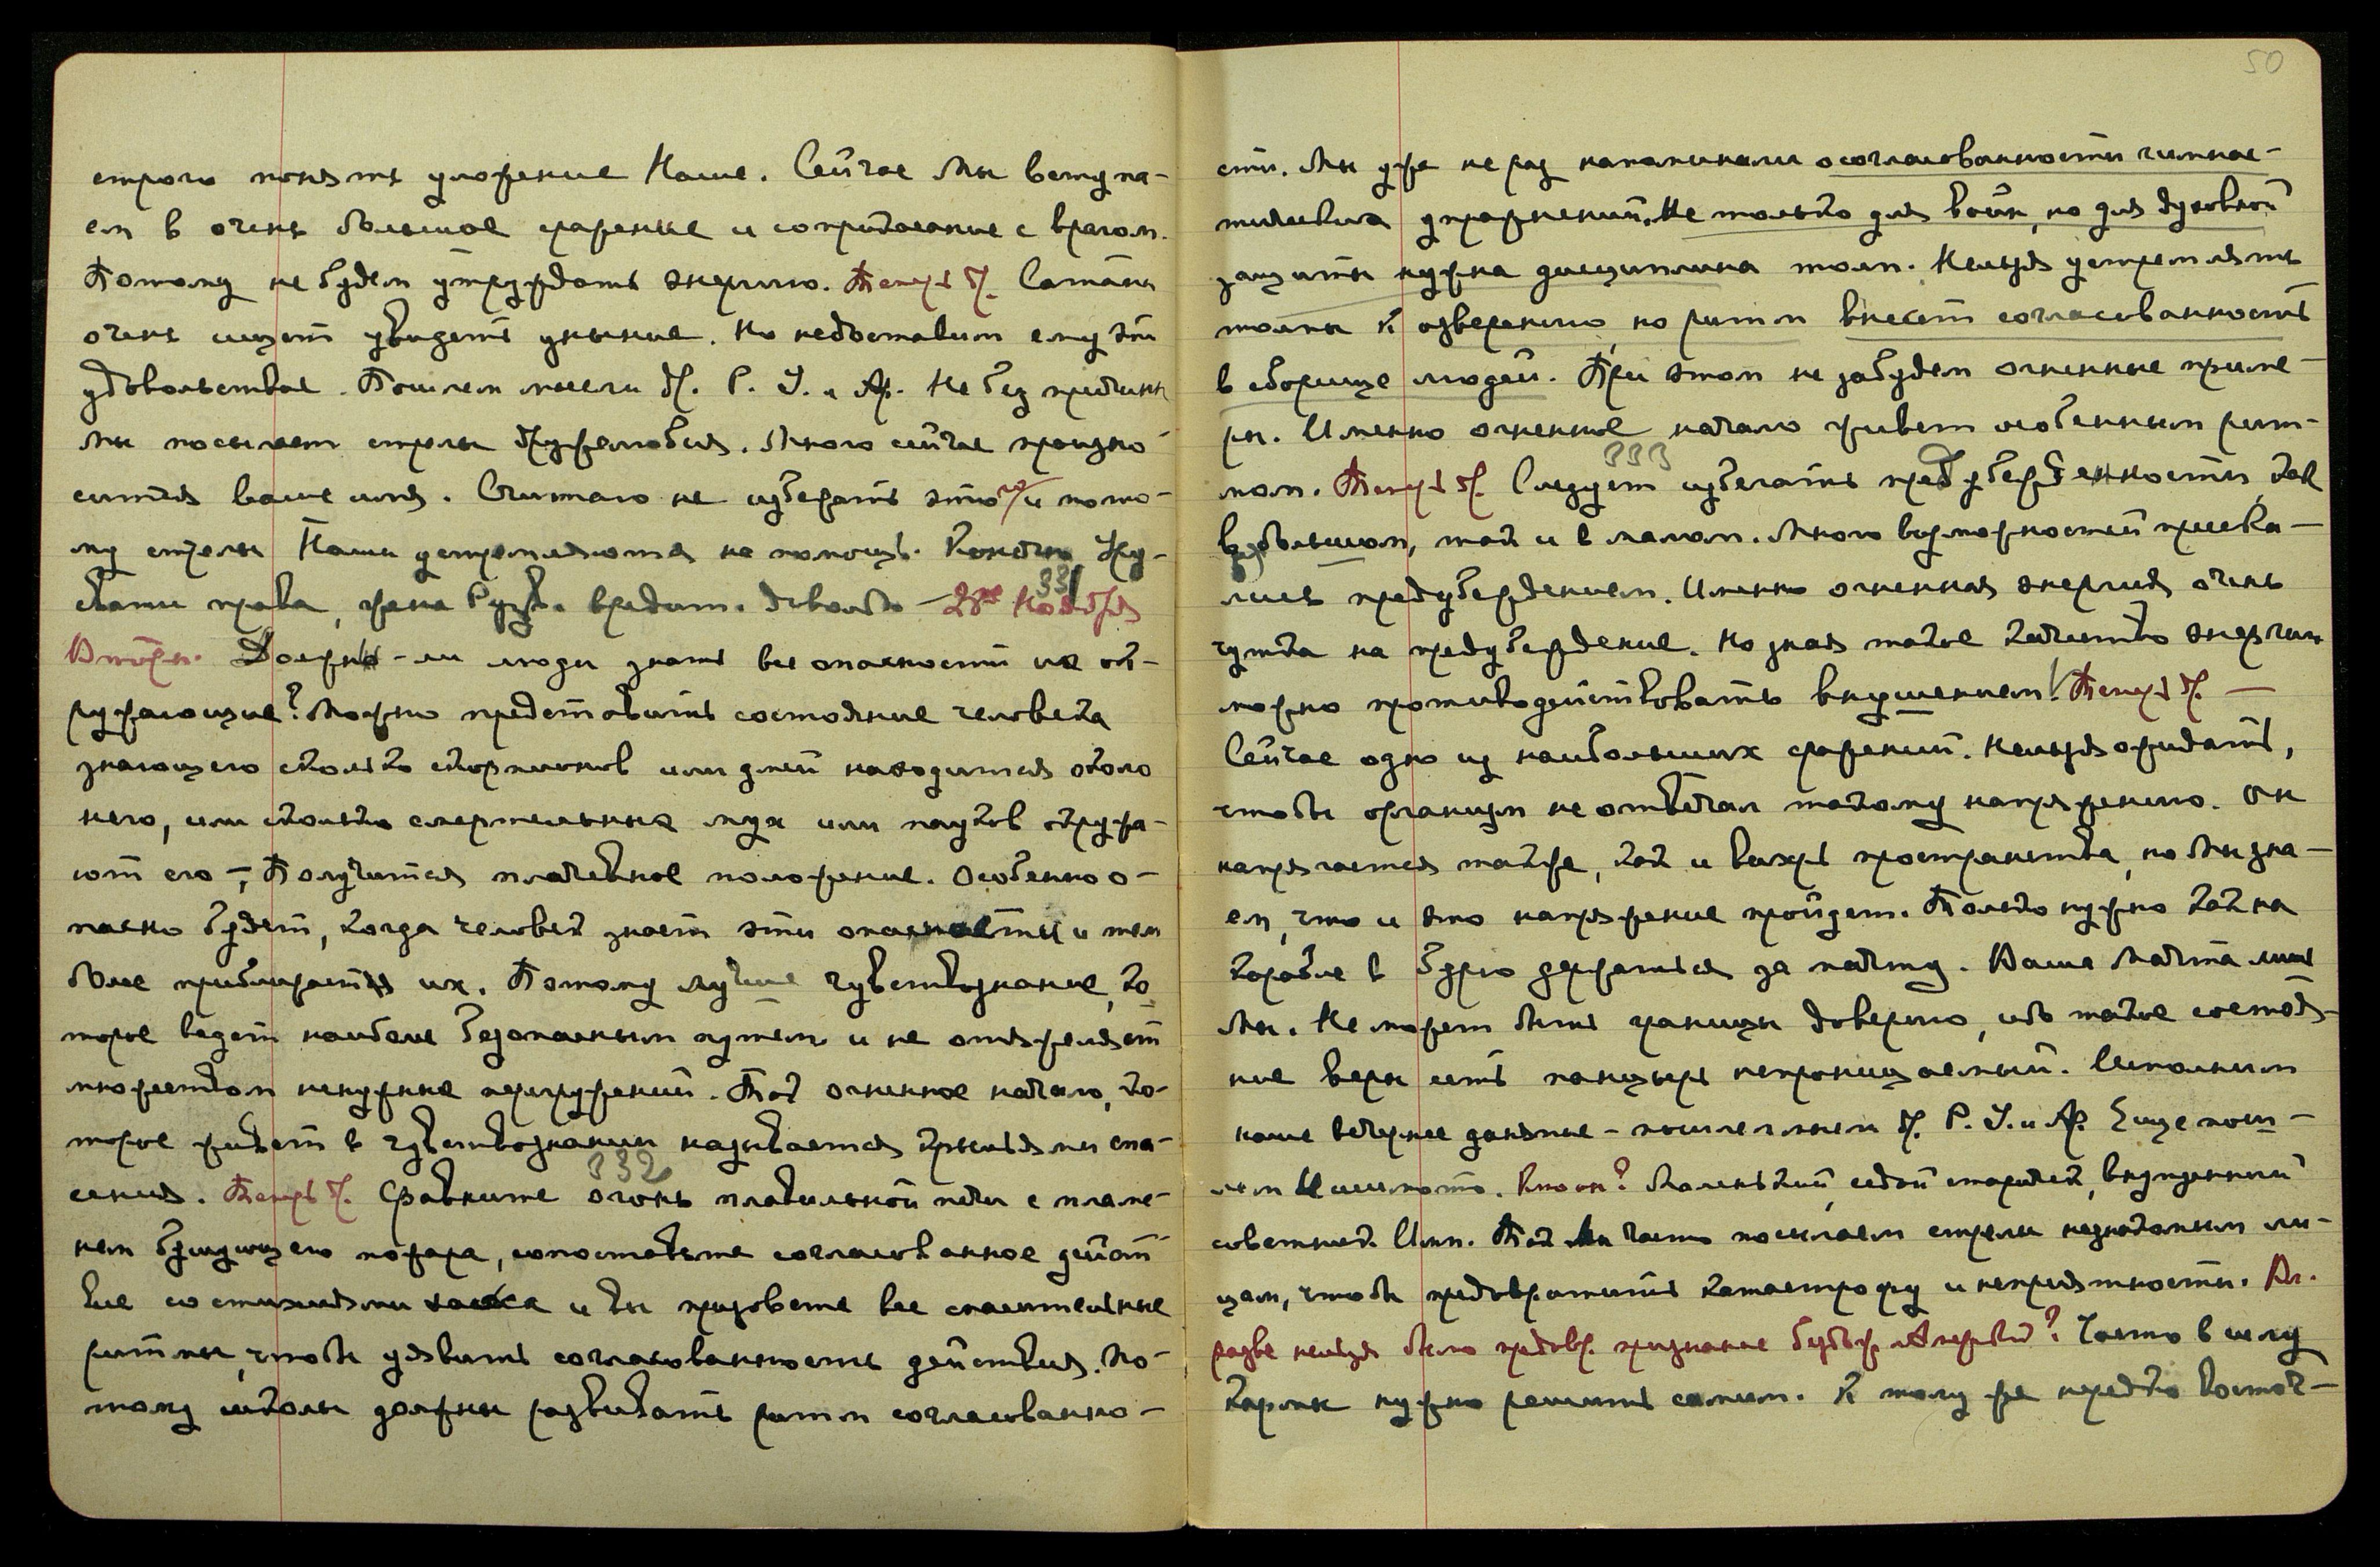 строго понять уложение Наше. Сейчас Мы вступа-
ем в очень большое сражение и соприкасание с врагом.
Потому не будем утруждать энергию. Сатана
очень ищет увидеть уныние. Но недоставим ему эти
удовольствие. Пошлем мысли Ф. Р. У. и Ар. Не без причины
мы посылаем стрелы дружелюбия. Много сейчас произно-
сится ваше имя. Считаю не избегать этого и пото-
му стрелы Наши устремляются на помощь. Конечно
права, жена вредит. Довольно – 28ое Ноября
331
Вторн. Должны-ли люди знать все опасности их ок-
ружающие? Можно представить состояние человека
знающего сколько скорпионов или змей находится около
него, или сколько смертельных мух или пауков окружа-
ют его –, Получится плачевное положение. Особенно о-
пасно будет, когда человек знает эти опасности и тем
более приближает их. Потому лучше чувствознание, ко
торое ведет наиболее безопасным путем и не отяжеляет
множеством ненужных перегружений. Так огненное начало, ко-
торое живет в чувствознании называется крыльями спа-
332
сения. Сравните огонь плавильной печи с пламе-
нем бушующего пожара, сопоставьте согласованное дейст-
вие со стихиями хаоса и вы призовете все спасительные
ритмы, чтобы уявить согласованность действия. По-
тому школы должны развивать ритм согласованно-
50
сти. Мы уже не раз напоминали о согласованности гимнас-
тических упражнений. Не только для войн, но для духовной
защиты нужна дисциплина толп. Нельзя устремлять
толпы к озверению, но ритм внесет согласованность
в сборище людей. При этом не забудем огненные приме-
ры. Именно огненное начало живет особенным рит-
333
мом. Следует избегать предубежденности, как
в большом, так и в малом. Много возможностей пресека-
лись предубеждением. Именно огненная энергия очень
чутка на предубеждение. Но зная такое качество энергии
можно противодействовать внушением!
Сейчас одно из наибольших сражений. Нельзя ожидать,
чтобы организм не отвечал такому напряжению. Он
напрягается также, как и вихрь пространства, но Мы зна-
ем, что и это напряжение пройдет. Только нужно как на
корабле в бурю держаться за мачту. Ваша Мачта лишь
Мы. Не может быть границы доверию, ибо такое состоя-
ние веры есть панцырь непроницаемый. Исполним
наше вечернее данные – пошлем мысли Ф. Р. У. и Ар. Еще пош-
лем Кто он? Маленький, седой старичек, вынужденный
советник Имп. Так Мы часто посылаем стрелы незнакомым ли-
цам, чтобы предотвратить катастрофу и неприятности. Вл.
разве нельзя было предотвр. признание Америкой? Часто в силу
Кармы нужно решить самим. К тому же нередко восточ-